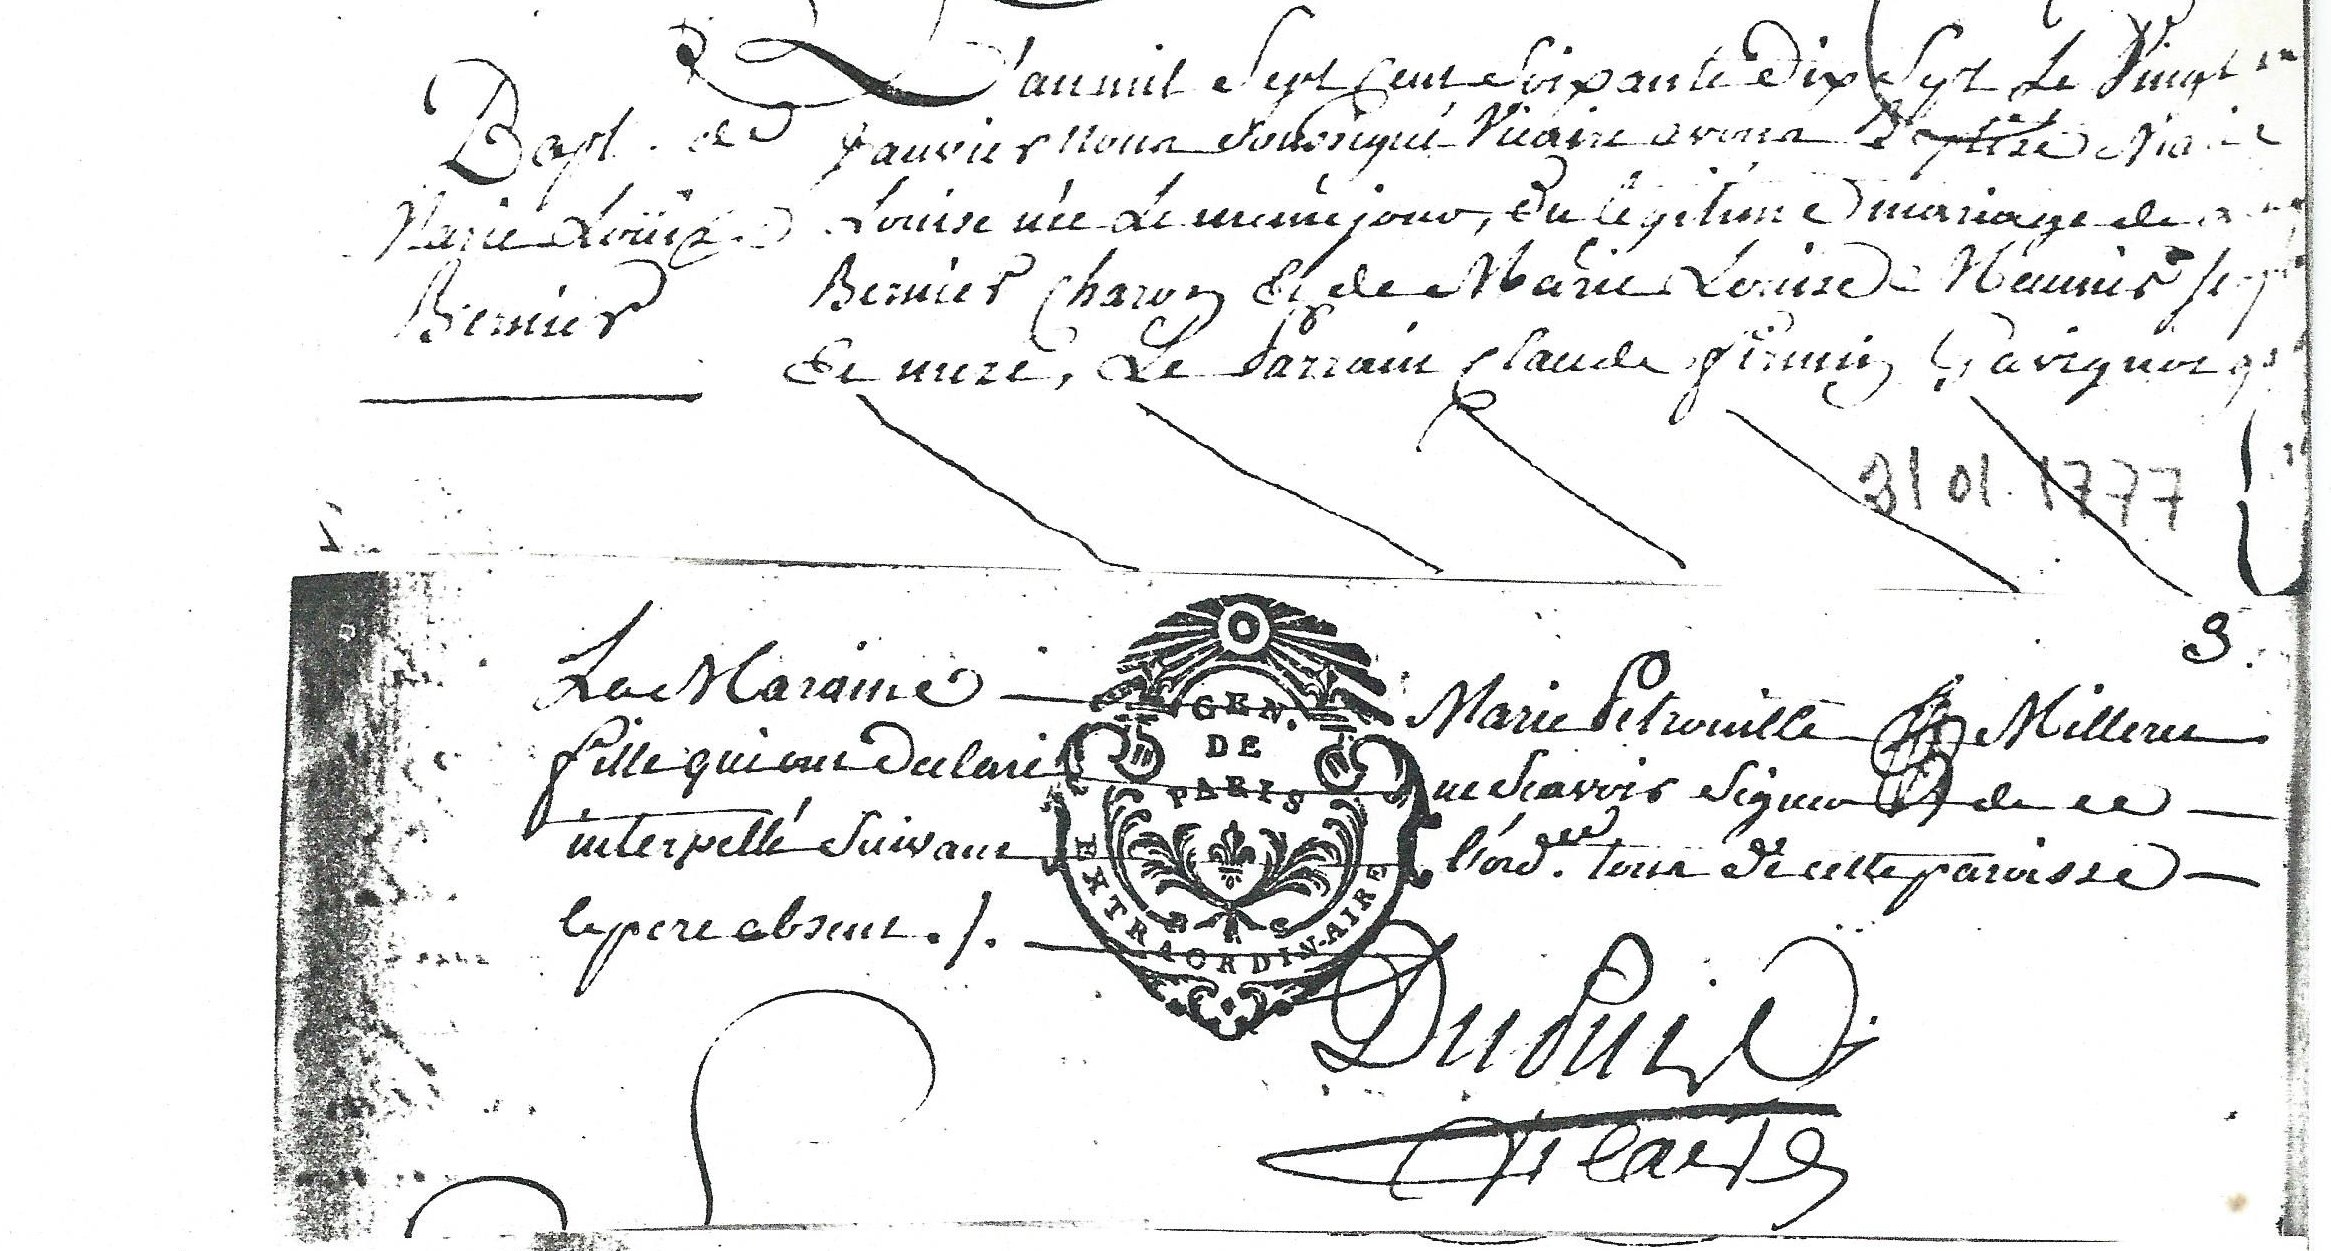 L'an mil Sept Cent Soixante Dix Sept Le Vingt
Bapt. de
Janvier nous Soussigné Vicaire avons Baptisé Marie
Marie Loüise
Louise née Le meme jour, Du légitime mariage de
Bernier
Bernier Charon Et de Marie Louise Meunier
Et mere, Le Parrain Claude firmin Gavignot
31 01. 1777
3.
La Maraine — Marie Petronille Milleret
fille qui ont Declaré ne Scavoir Signer de ce —
interpellé Suivant l'ord.ce tous De cette paroisse —
le pere absent ./. —
GEN.
DE
PARIS
EXTRAORDINAIRE
Dupuis
Vicaire